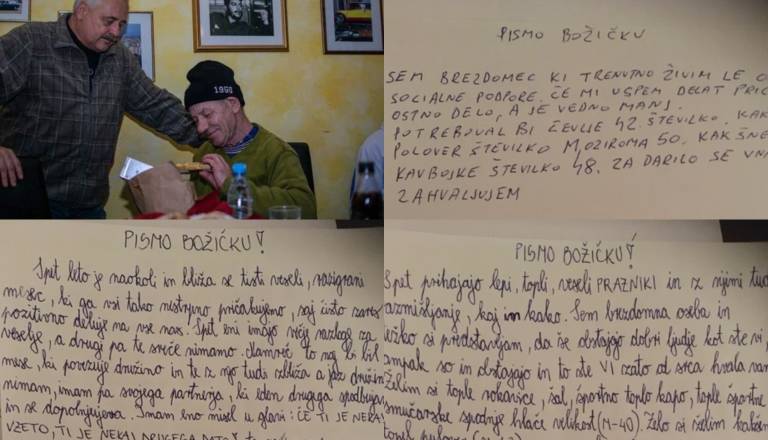 1950
PISMO BOŽIČKU
SEM BREZDOMEC KI TRENUTNO ŽIVIM LE O
SOCIALNE PODPORE. ČE MI USPEM DELAT PRIC
OSTNO DELO, A JE VEDNO MANJ.
POTREBOVAL BI ČEVLJE 42. ŠTEVILKO. KAK
POLOVER ŠTEVILKO M, OZIROMA 50, KAKŠNE
KAVBOJKE ŠTEVILKO 48. ZA DARILO SE VN
ZAHVALJUJEM
PISMO BOŽIČKU!
Spet leto je naokoli in bliža se tisti veseli, razigrani
mesec, ki ga vsi tako nestrpno pričakujemo, saj čisto zares
pozitivno deluje na vse nas. Spet eni imajo večji razlog za
veselje, a drugi pa te sreče nimamo. Namreč to naj bi bil
mesec, ki povezuje družino in te z njo tudi zbliža a jaz družine
nimam, imam pa svojega partnerja, ki eden drugega spodbuja
in se dopolnjujeva. Imam eno misel v glavi: ČE TI JE NEKAJ
VZETO, TI JE NEKAJ DRUGEGA DATO!
PISMO BOŽIČKU!
Spet prihajajo lepi, topli, veseli PRAZNIKI in z njimi tudi
razmišljanje, kaj in kako. Sem brezdomna oseba in
težko si predstavljam, da še obstajajo dobri ljudje kot ste vi,
ampak so in obstajajo in to ste VI zato od srca hvala vam
Želim si tople rokavice, šal, športno toplo kapo, tople športne
smučarske spodnje hlače velikost (M-40). Zelo si želim kakšen